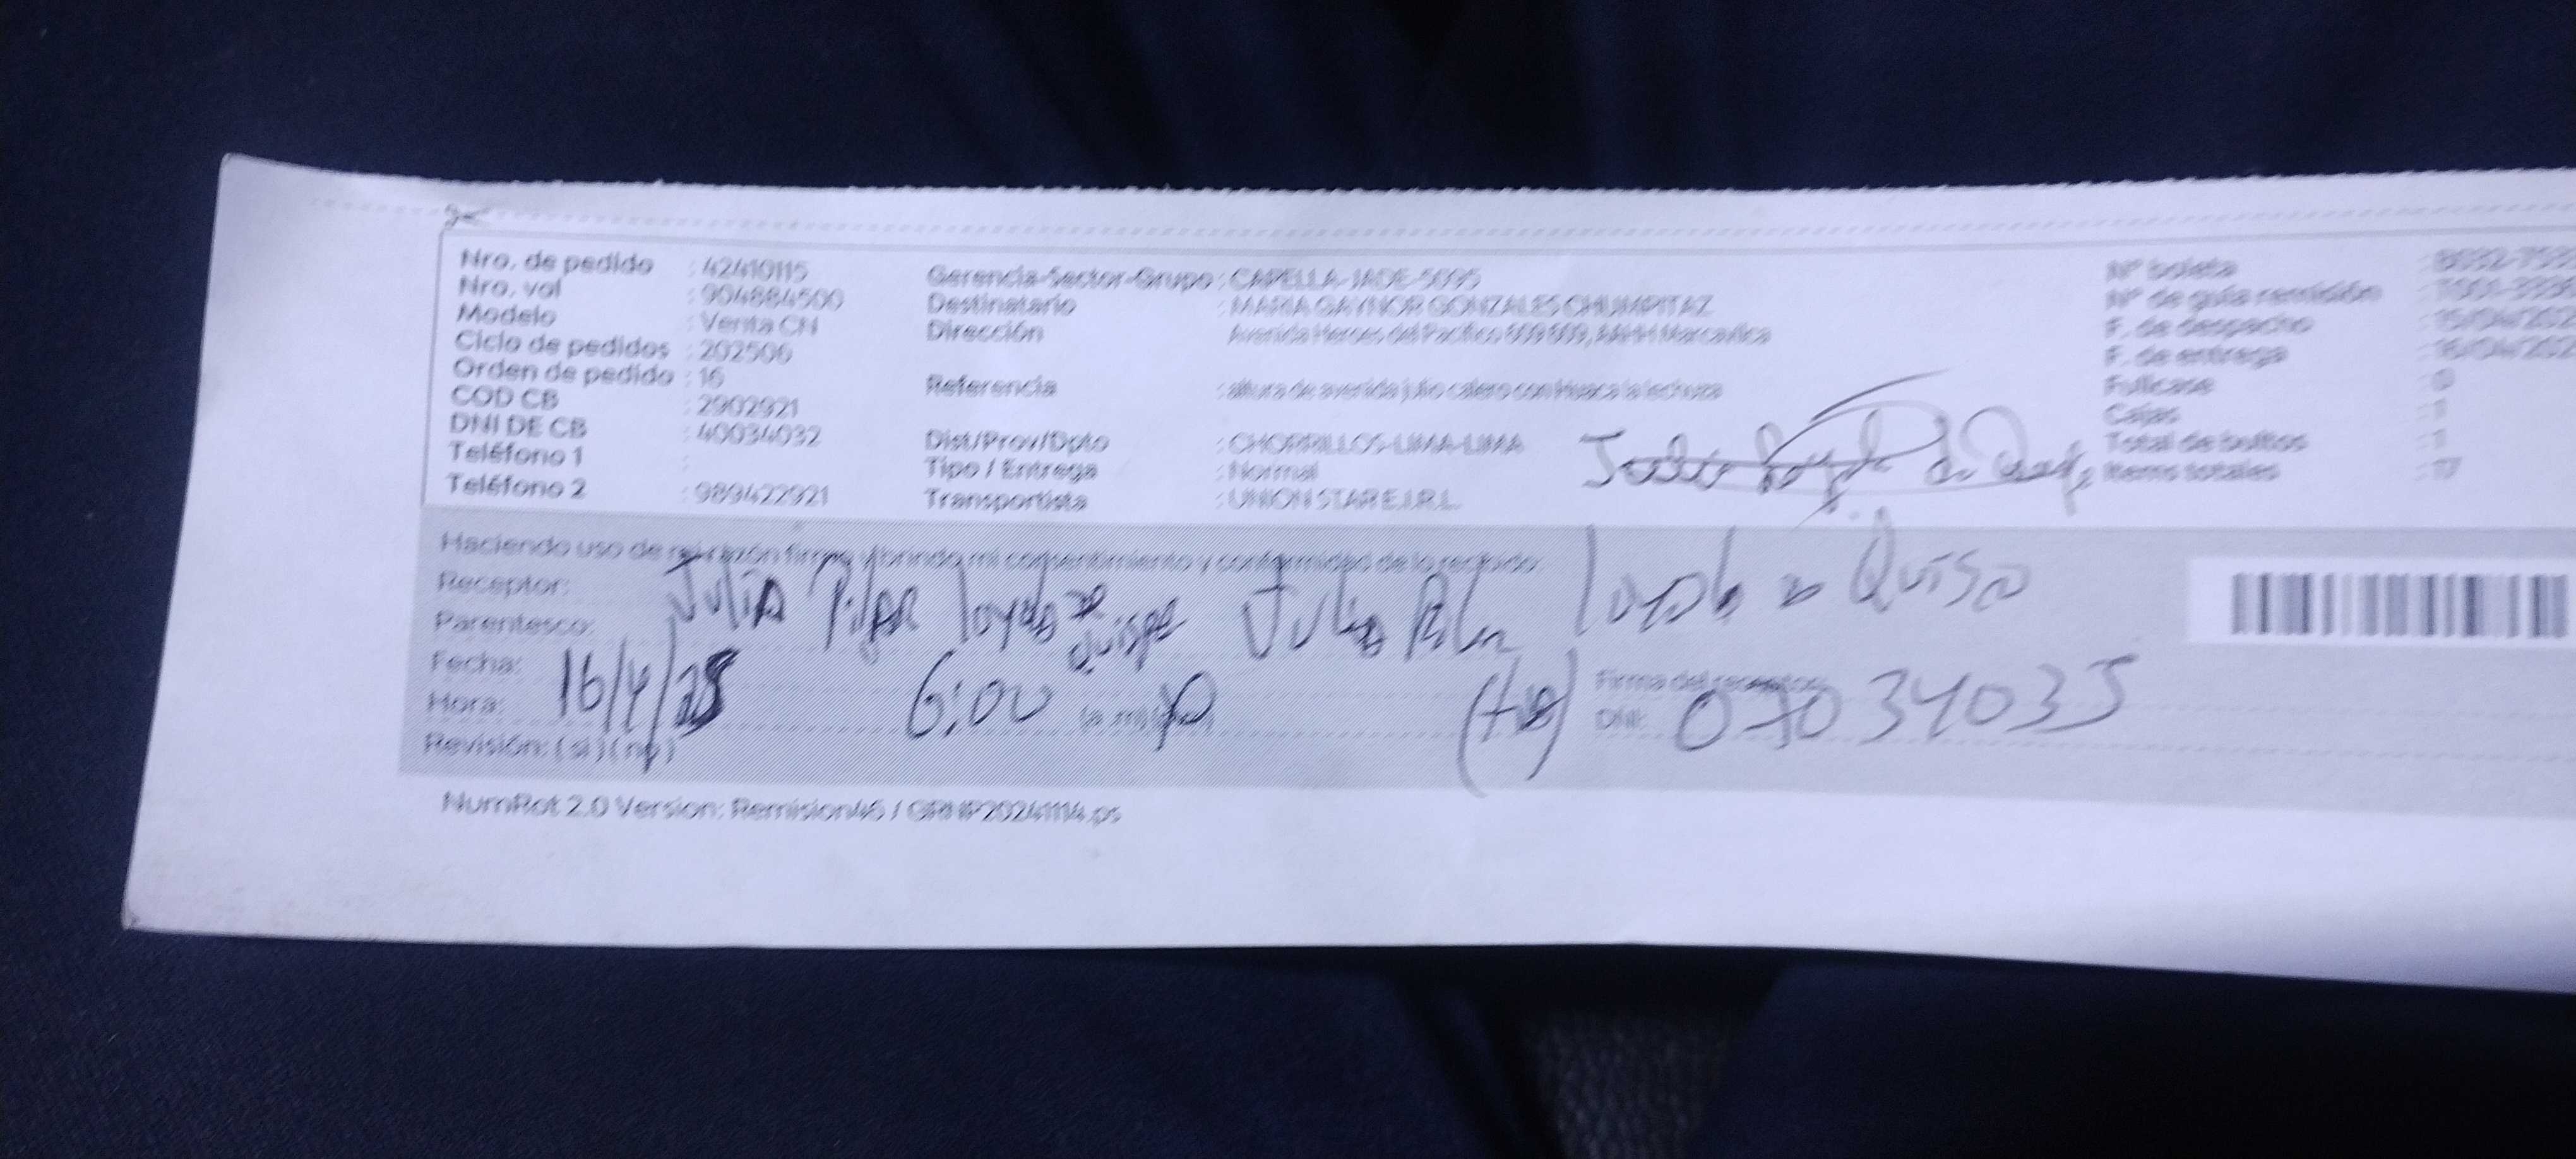 Nro. de pedido : 42410115
Nro. vol : 904884500
Modelo : Venta CN
Ciclo de pedidos : 202506
Orden de pedido : 16
COD CB : 2902921
DNI DE CB : 40034032
Teléfono 1 :
Teléfono 2 : 989422921
Gerencia-Sector-Grupo : CAPELLA-JADE-5695
Destinatario : MARIA GAYNOR GONZALES CHUMPITAZ
Dirección : Avenida Heroes del Pacifico
Referencia : altura de avenida
Dist/Prov/Dpto : CHORRILLOS-LIMA-LIMA
Tipo / Entrega : Normal
Transportista : UNION STAR E.I.R.L.
Nº boleta
Nº de guía remisión
F. de despacho : 15/04/202
F. de entrega : 16/04/202
Fullcase : 0
Cajas : 1
Total de bultos : 1
Items totales : 17
Haciendo uso de mi razón firmo y brindo mi consentimiento y conformidad de lo recibido:
Receptor: Julia Pilar Loyola de Quispe Julia Pilar
Parentesco:
Fecha: 16/4/25
Hora: 6:00 p
Firma del receptor:
DNI: 07034035
Revisión: (si) (no)
NumRot 2.0 Version: Remision46 / GRNP20241114.ps